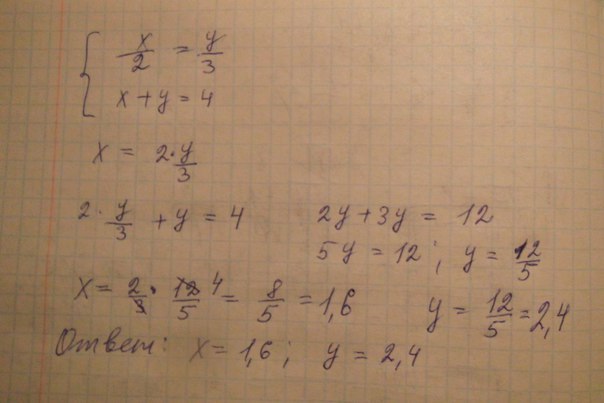 x/2 = y/3
x + y = 4
x = 2·y/3
2·y/3 + y = 4
2y + 3y = 12
5y = 12; y = 12/5
x = 2/3 · 12/5 4 = 8/5 = 1,6
y = 12/5 = 2,4
Ответ: x = 1,6; y = 2,4